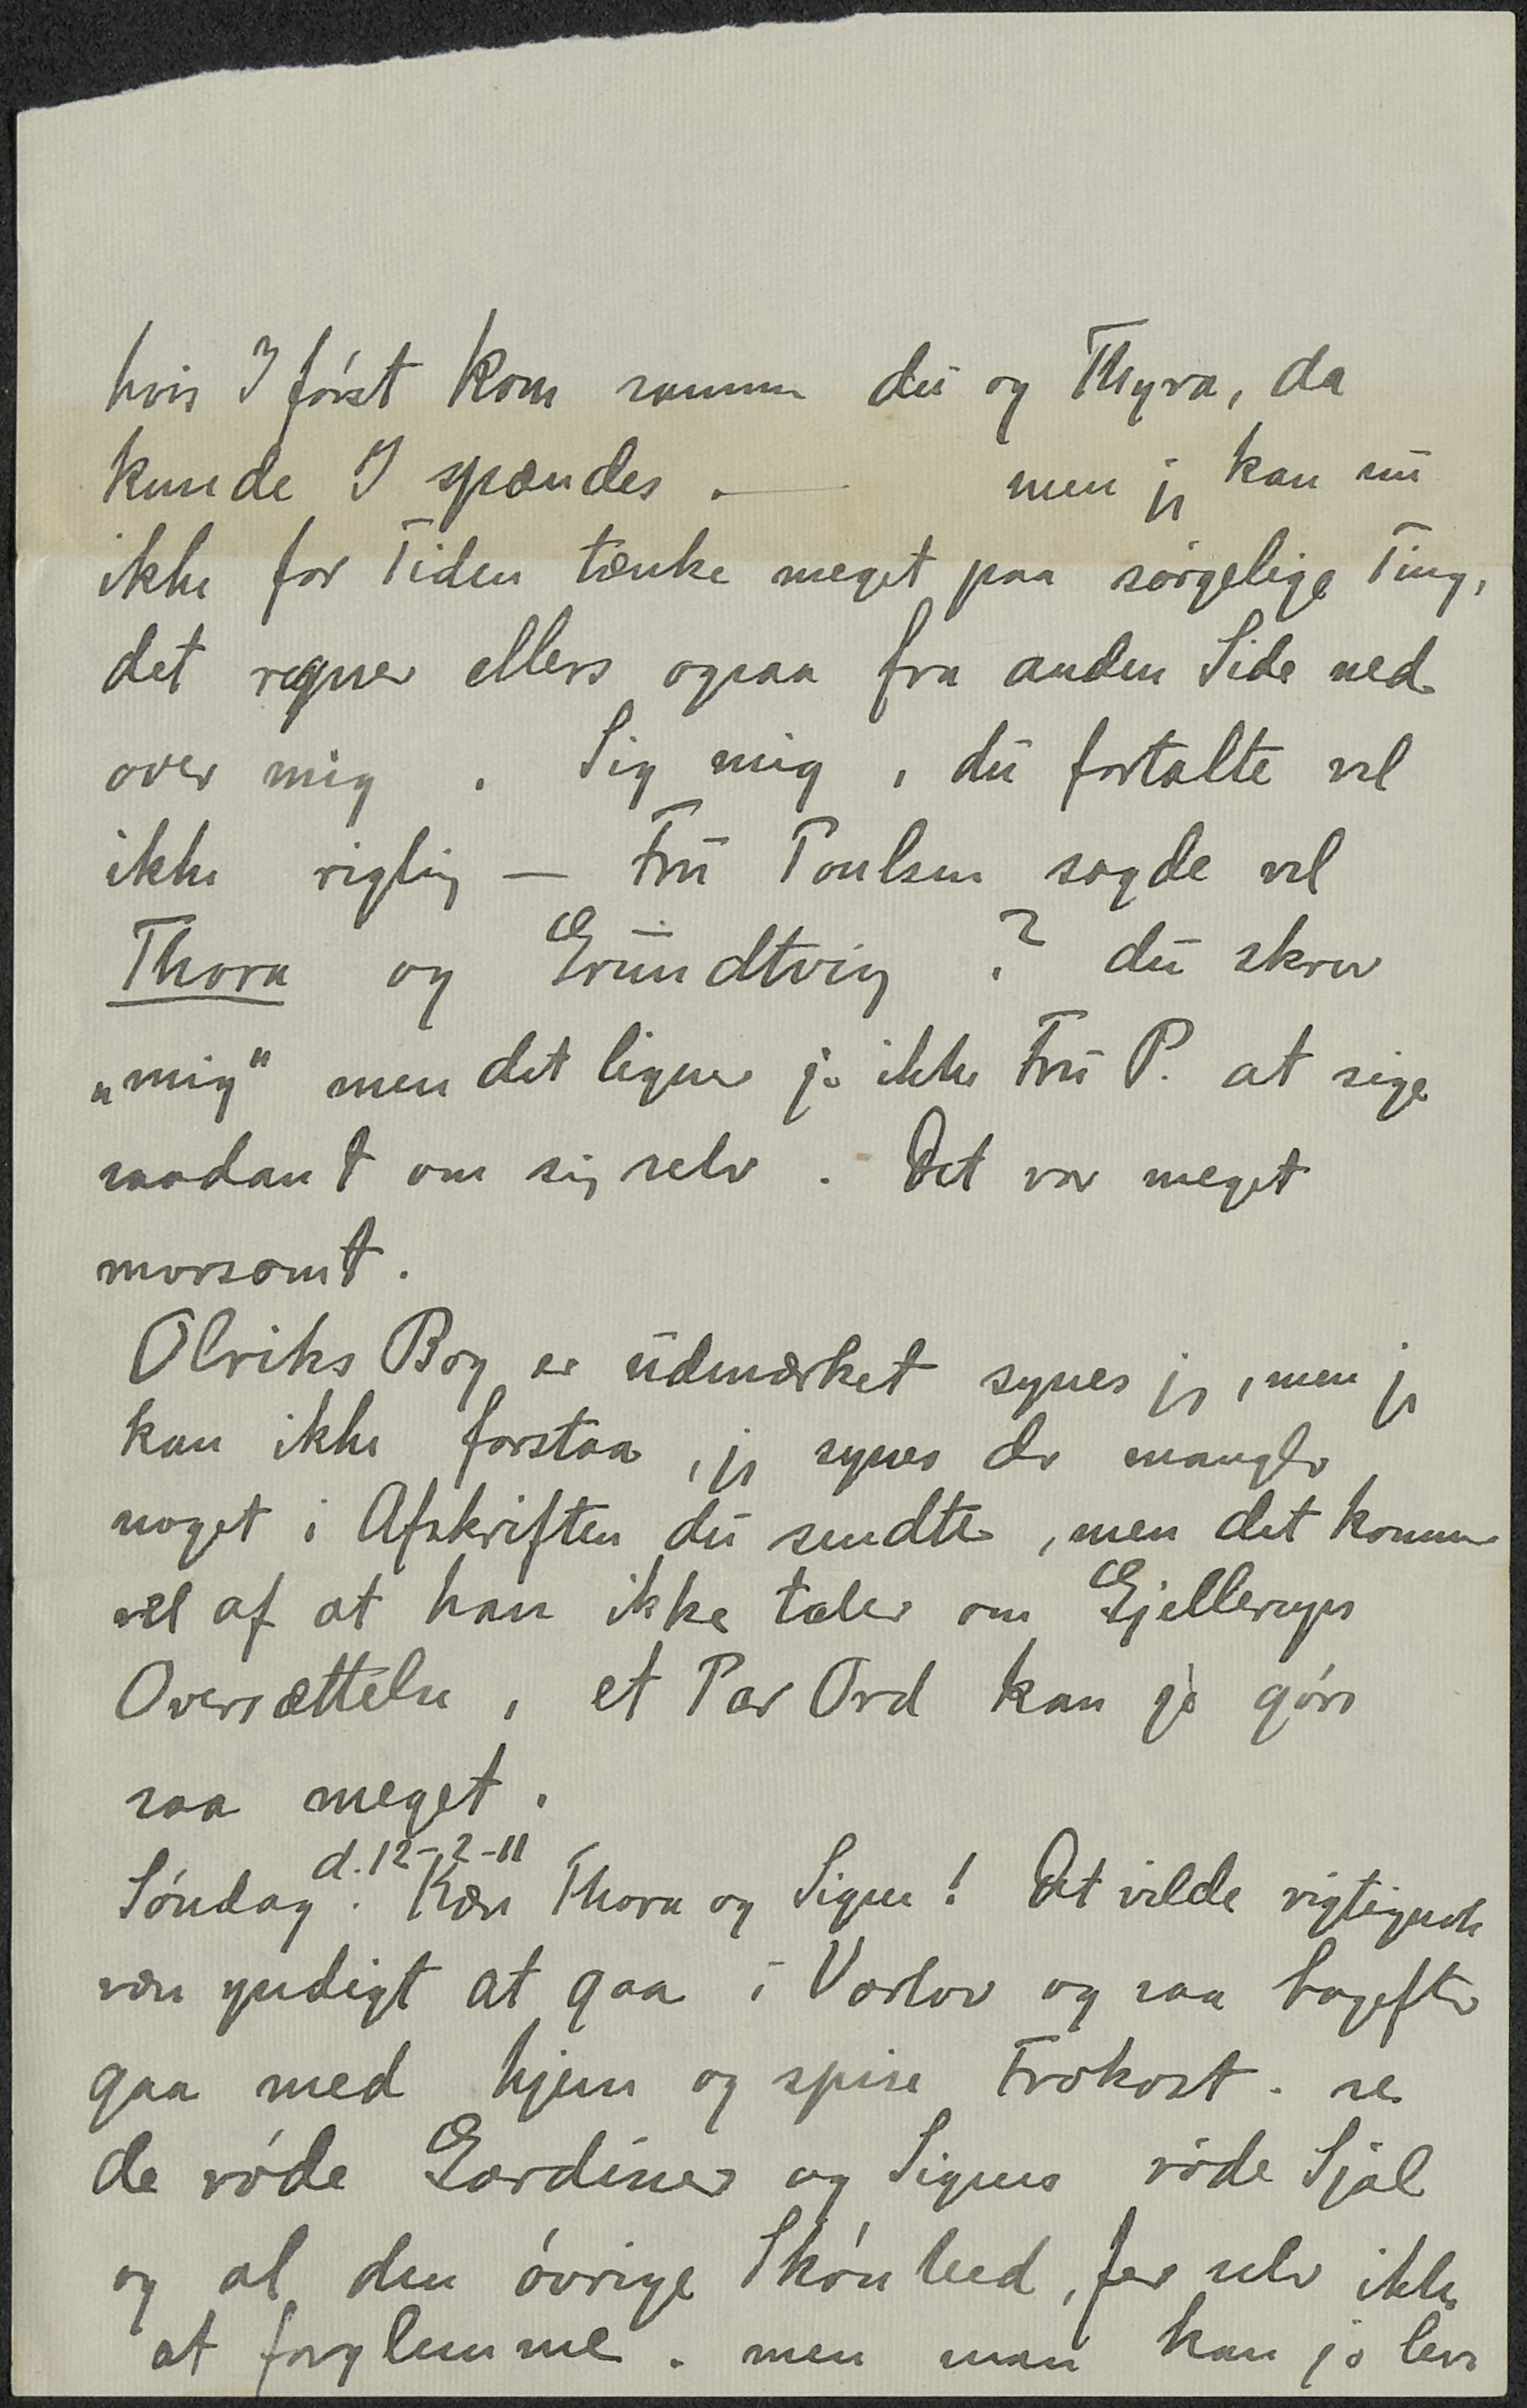 hvis I først kom sammen du og Thyra, da
kunde I spændes. — men jeg kan nu
ikke for Tiden tænke meget paa sørgelige Ting,
det regner ellers ogsaa fra anden Side ned
over mig. Sig mig, du fortalte vel
ikke rigtig — Fru Poulsen sagde vel
Thora og Grundtvig? du skrev
„mig" men det ligner jo ikke Fru P. at sige
saadant om sig selv. Det var meget
morsomt.
Olriks Bog er udmærket synes jeg, men jeg
kan ikke forstaa, jeg synes der mangler
noget i Afskriften du sendte, men det kommer
vel af at han ikke taler om Gjellerups
Oversættelse, et Par Ord kan jo gøre
saa meget.
Søndag d. 12-2-11. Kære Thora og Signe! Det vilde rigtignok
være yndigt at gaa i Vartov og saa bagefter
gaa med hjem og spise Frokost. se
de røde Gardiner og Signes røde Sjal
og al den øvrige Skønhed, far selv ikke
at forglemme. men man kan jo leve